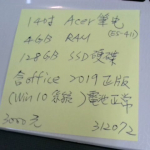 14吋 Acer筆電
(ES-411)
4GB RAM
128GB SSD硬碟
含office 2019正版
(Win10系統) 電池正常
3000元 312072